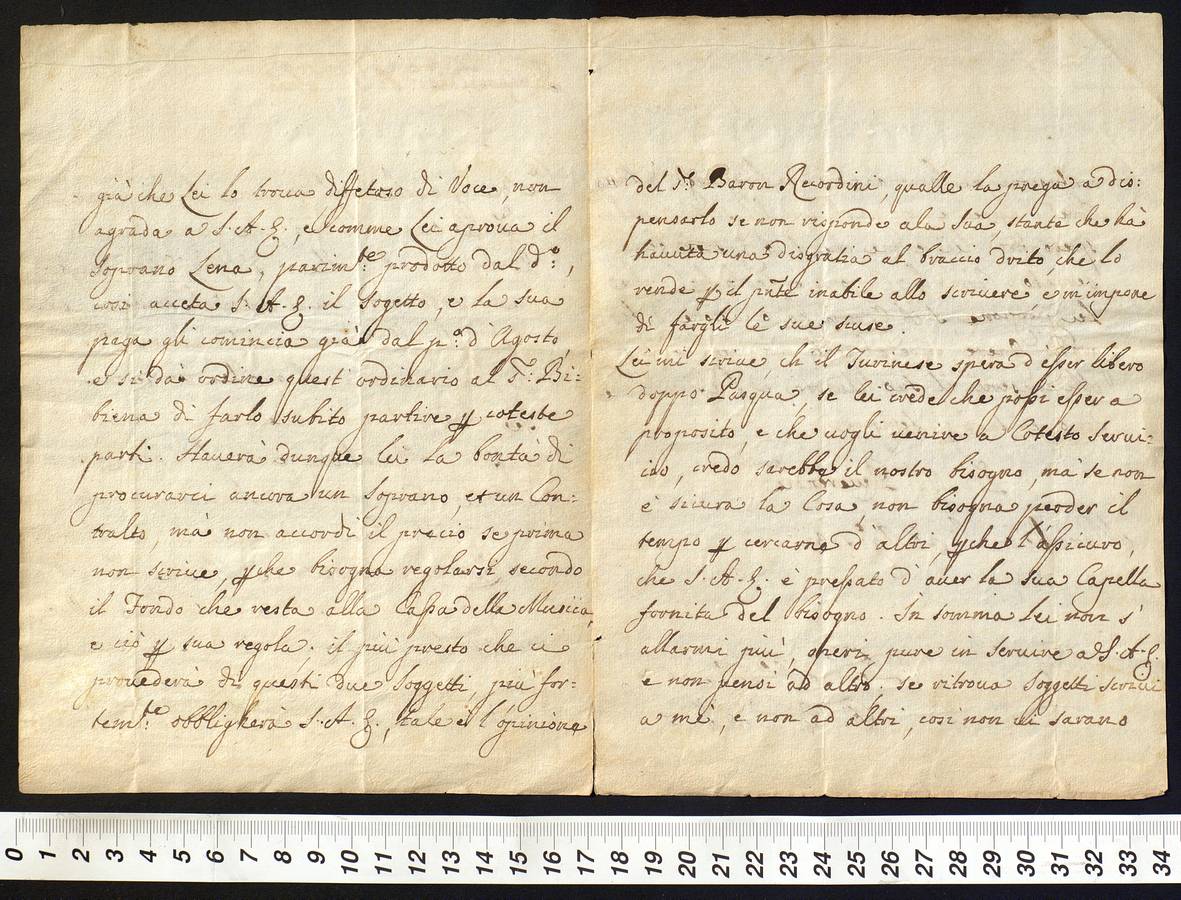 già che Lei lo troua diffetoso di Voce, non
agrada a S. A. E., e comme Lei aproua il
Soprano Lena, parim.te prodotto dal d.o,
cosi acceta S. A. E. il Sogetto, e la sua
paga gli comincia già dal p.o d'Agosto
e si dà ordine quest'ordinario al S.r Bi:
biena di farlo subito partire p coteste
parti. Hauerà dunque lei la bontà di
procurarci ancora un Soprano, et un Con:
tralto, mà non accordi il precio se prima
non scriue, pche bisogna regolarsi secondo
il Fondo che resta alla Cassa della Musica,
e ciò p sua regola, il più presto che ci
prouederà di questi due Soggetti, più for:
tem.te obbligherà S. A. E., tale è l'opinione
del S.r Baron Recordini, qualle la prega a dis:
pensarlo se non risponde ala sua, stante che hà
hauuta una disgratia al braccio drito, che lo
rende p il pñte inabile allo scriuere e m'impone
di fargli le sue scuse.
Lei mi scriue ch il Turinese spera d'esser libero
doppo Pasqua, se lei crede che possi esser a
proposito, e che uogli uenire a Cotesto Serui:
cio, credo sarebbe il nostro bisogno, mà se non
è sicura la Cosa non bisogna perder il
tempo p cercarne d'altri, pche l'assicuro,
che S. A. E. è pressato d'auer la sua Capella
fornita del bisogno. In somma Lei non s'
allarmi più, operi pure in seruire a S. A. E.
e non pensi ad altro, se ritroua Soggetti scriui
a me, e non ad altri, cosi non ui sarano